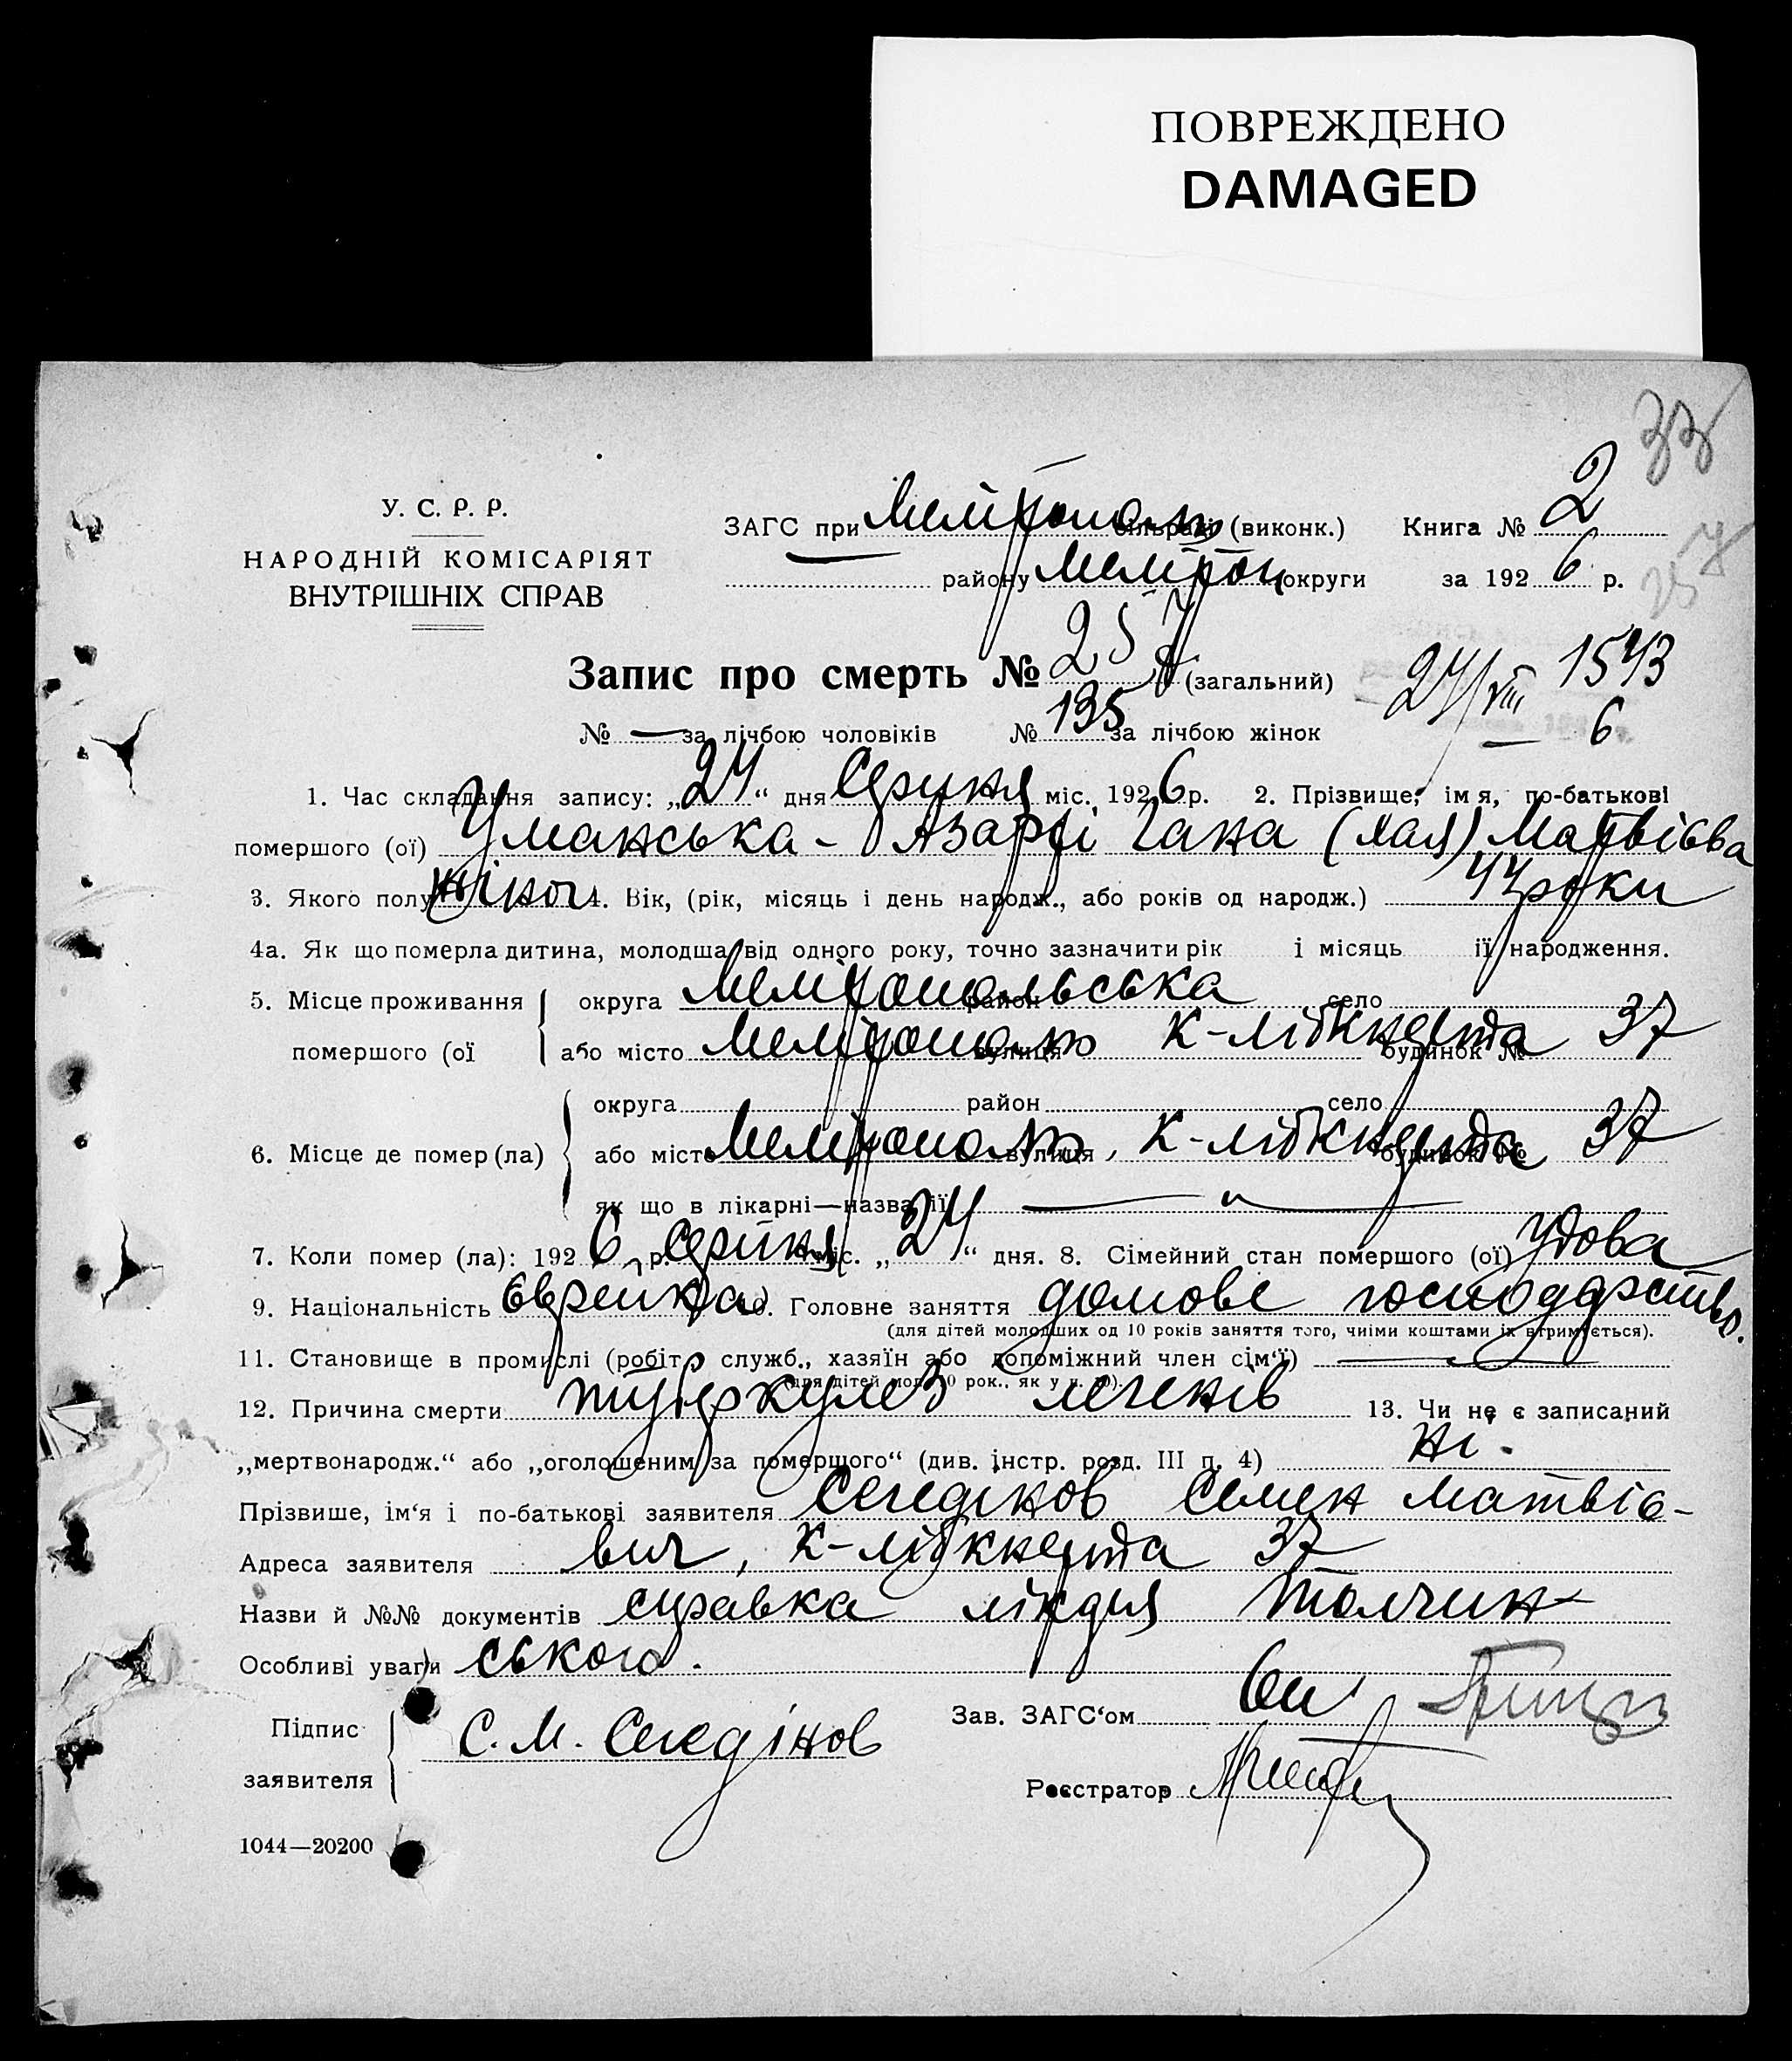 ПОВРЕЖДЕНО
DAMAGED
У. С. Р. Р.
НАРОДНІЙ КОМІСАРІЯТ
ВНУТРІШНІХ СПРАВ
ЗАГС при Мелітополь сільраді (виконк.) Книга № 2
району Меліпоц округи за 1926 р.
Запис про смерть № 257 (загальний)
24/VIII 1543
6
№ — за лічбою чоловіків № 135 за лічбою жінок
1. Час складання запису: „24“ дня Серпня міс. 1926 р. 2. Прізвище, імя, по-батькові
помершого (ої) Уманська - Азарх Гана (Хая) Матвієва
3. Якого полу жіноч 4. Вік, (рік, місяць і день народж., або років од народж.) 44 роки
4а. Як що померла дитина, молодша від одного року, точно зазначити рік і місяць її народження.
5. Місце проживання округа Мелітопольська район село
помершого (ої або місто Мелітополь вулиця К-Лібкнехта будинок № 37
округа район село
6. Місце де помер (ла) або місто Мелітополь вулиця, К-Лібкнехта будинок № 37
як що в лікарні—назва її —
7. Коли помер (ла): 1926 р. серпня міс. „24“ дня. 8. Сімейний стан помершого (ої) Удова
9. Національність єврейка 10. Головне заняття домове господарство.
(для дітей молодших од 10 років заняття того, чиїми коштами їх втримується).
11. Становище в промислі (робітн, служб., хазяїн або допоміжний член сім'ї) —
(для дітей мол. 10 рок., як у п. 10).
12. Причина смерти туберкулез легенів 13. Чи не є записаний
„мертвонародж.“ або „оголошеним за помершого“ (див. інстр. розд. III п. 4) ні.
Прізвише, ім'я і по-батькові заявителя Сегедінов Семен Матвіє-
Адреса заявителя вич, К-Лібкнехта 37
Назви й №№ документів справка лікаря Толчин-
Особливі уваги ського.
Підпис
заявителя С. М. Сегедінов
Зав. ЗАГС'ом
Реєстратор
1044—20200